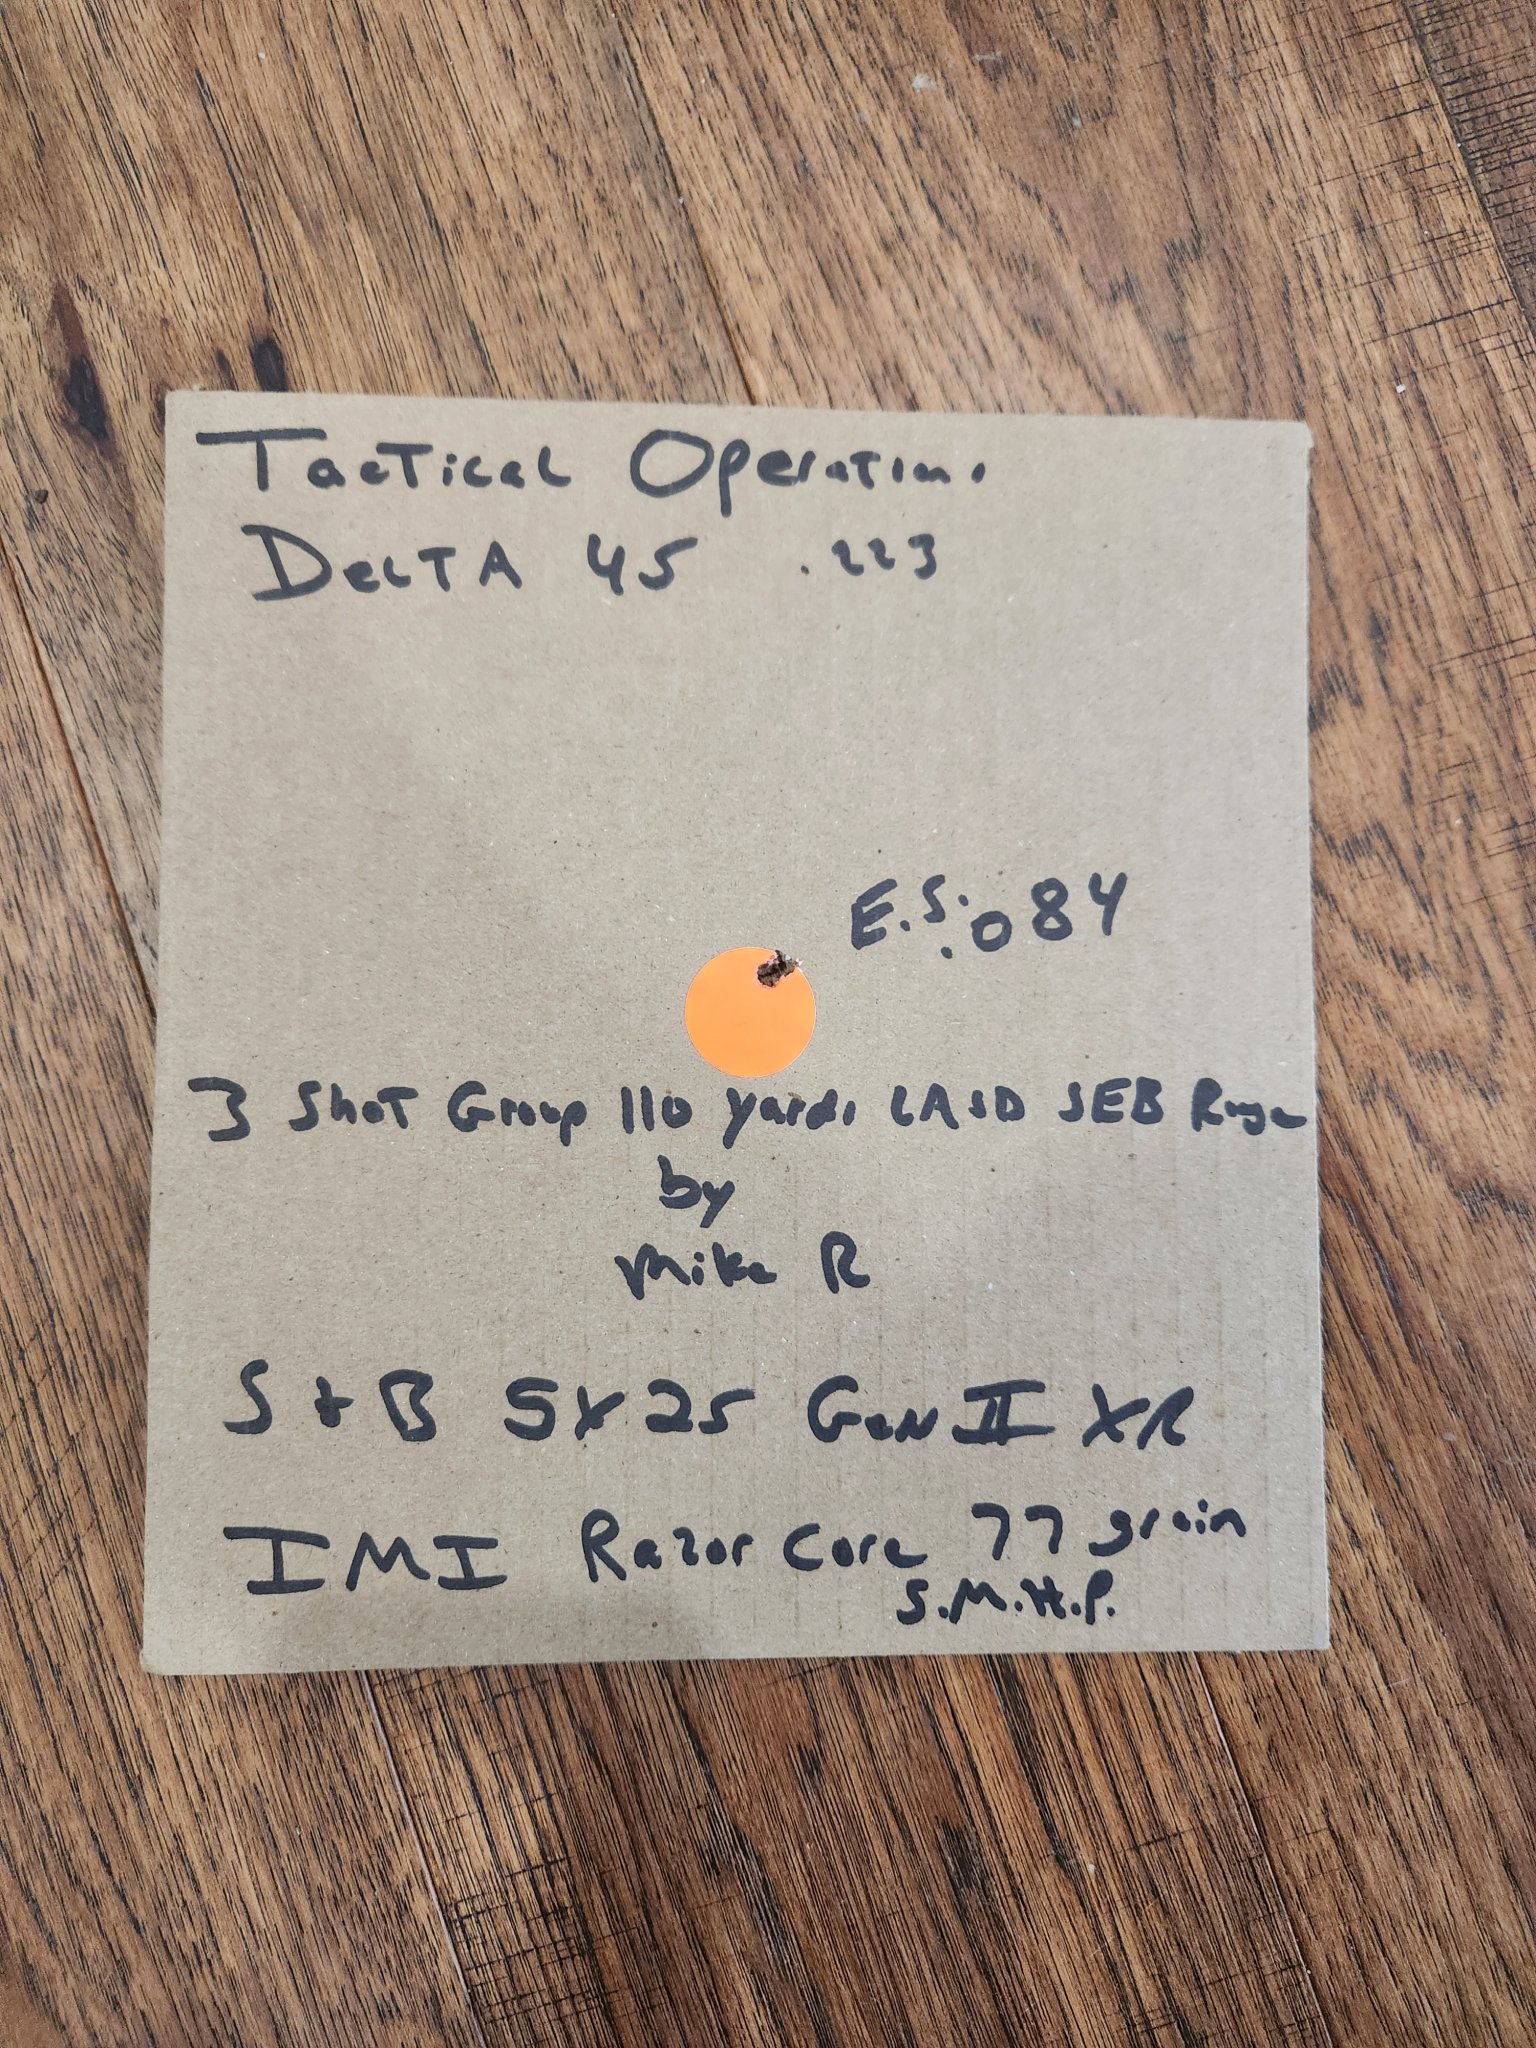 Tactical Operations
Delta 45 .223
E.S. .084
3 Shot Group 110 yards LASD SEB Range
by
Mike R
S + B 5x25 Gen II XR
IMI Razor Core 77 grain
S.M.H.P.